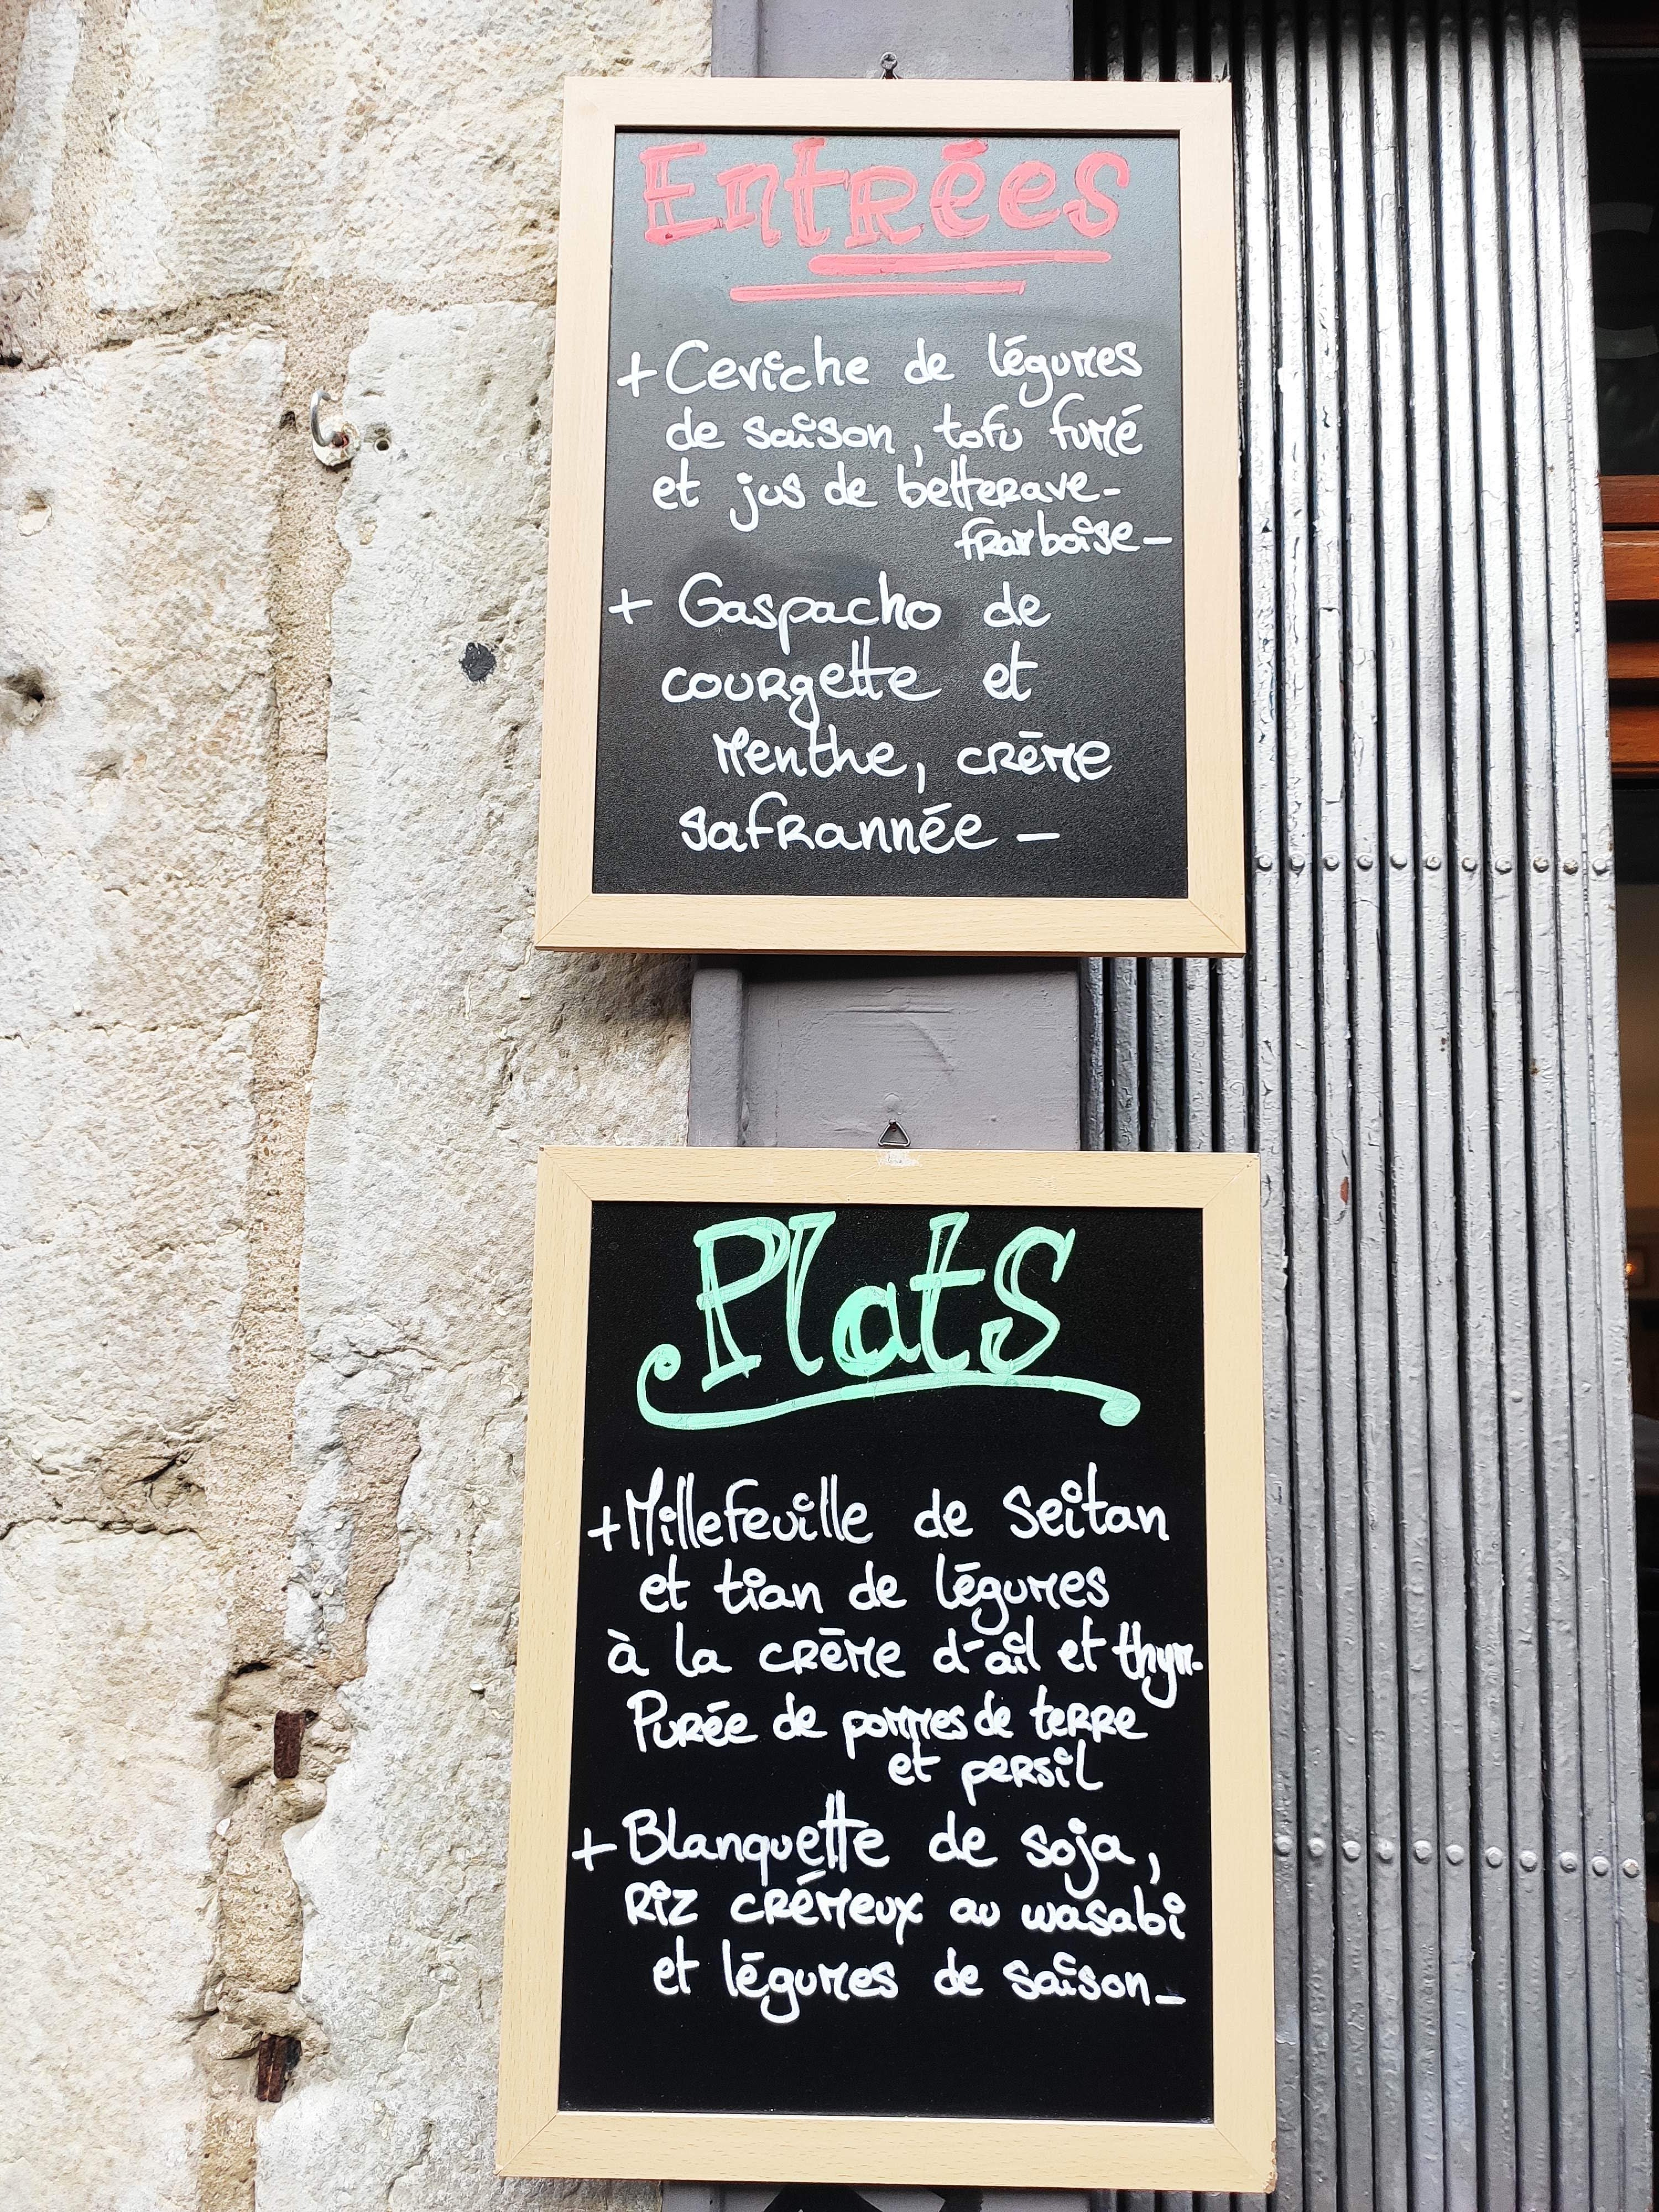 Entrées
+ Ceviche de légumes
de saison, tofu fumé
et jus de betterave-
framboise -
+ Gaspacho de
courgette et
menthe, crème
safrannée -
Plats
+ Millefeuille de seitan
et tian de légumes
à la crème d'ail et thym.
Purée de pommes de terre
et persil
+ Blanquette de soja,
riz crémeux au wasabi
et légumes de saison -